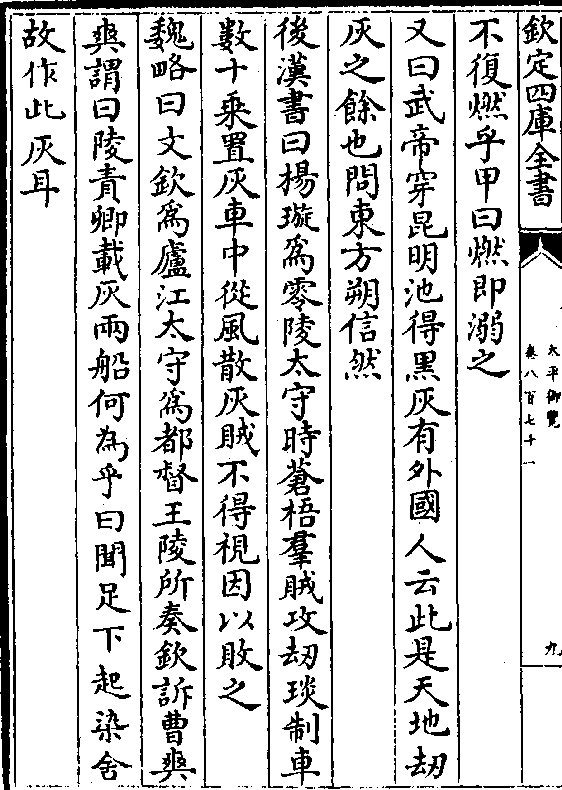 欽定四庫全書
太平御覽
卷八百七十一
九
不復燃乎甲曰燃即溺之
又曰武帝穿昆明池得黑灰有外國人云此是天地刧
灰之餘也問東方朔信然
後漢書曰揚璇為零陵太守時蒼梧羣賊攻刧琰制車
數十乘置灰車中從風散灰賊不得視因以敗之
魏略曰文欽為廬江太守為都督王陵所奏欽訴曹爽
爽謂曰陵責卿載灰兩船何為乎曰聞足下起染舍
故作此灰耳